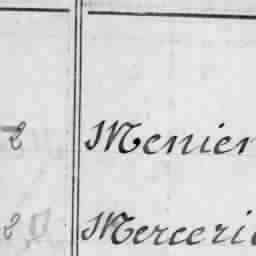 2 Menier
2 Mercerie